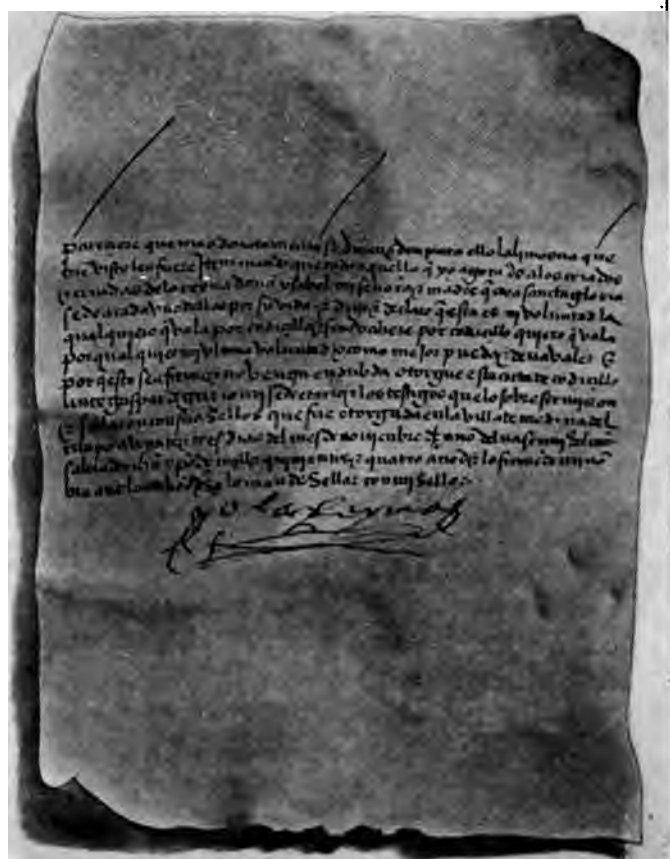 pareciere que mas devotamente se diran y den para ello la limosna que
bie visto les fuere Iten mando que todo aquello q yo agora do a los criados
e criadas de la reyna doña ysabel mi señora e madre q aya sancta gloria
se de a cada uno dellos por su vida e digo e declaro q esta es mi voluntad la
qual quiero q vala por codicillo e si no valiere por codicillo quiero q vala
por qualquier mi ultima voluntad o como mejor puede e deve valer E
por q esto sea firme e no venga en dubda otorgue esta carta de codicillo
ante gaspar de grizio mi secretario e los testigos que lo sobre
E sellaron con sus sellos que fue otorgada en la villa de medina del
a veynte e tres dias del mes de noviembre año del nascimi del
salvador de mill e quinientos e quatro años e lo firme de mi no
bre ante los e lo mande sellar con mi sello
yo la reyna